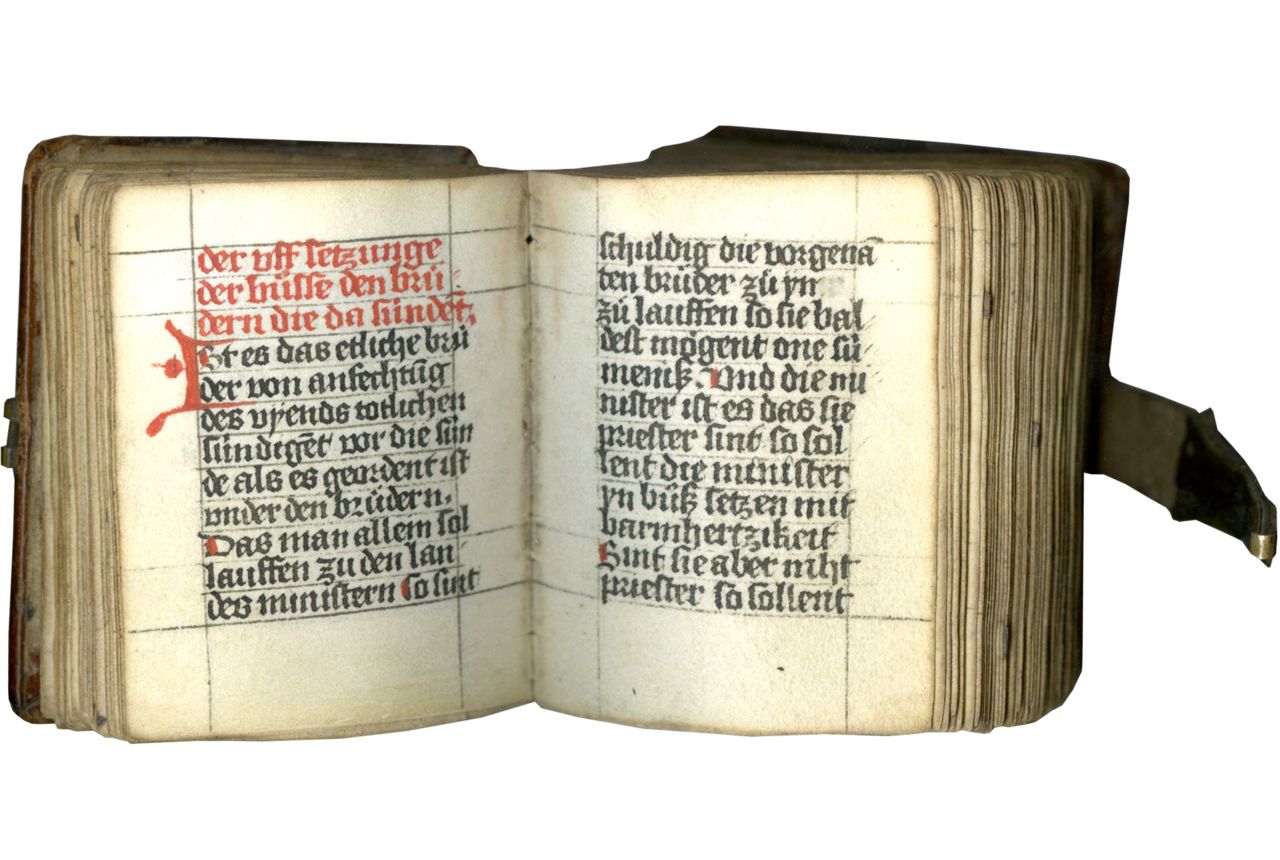 der vff setzunge
der bůsse den brů
dern die da sündēt.
Ist es das etliche brů
der von anfechtūg
des vyends totlichen
sündigēt vor die sün
de als es geordent ist
vnder den brüdern.
Das man allein sol
lauffen zu den lan
des ministern So sint
schuldig die vorgenā
ten brüder zů yn
zů lauffen so sie bal
dest mögent one sü
meniß. Vnd die mi
nister ist es das sie
priester sint so sol
lent die minister
yn bůß setzen mit
barmhertzikeit
Sint sie aber niht
priester so sollent